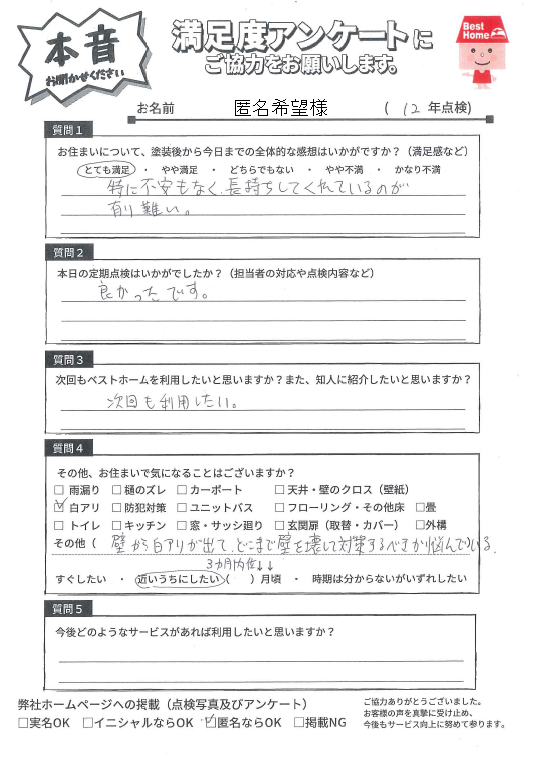 本音
お聞かせください
満足度アンケートに
ご協力をお願いします。
Best Home
お名前 匿名希望様 ( 12 年点検)
質問1
お住まいについて、塗装後から今日までの全体的な感想はいかがですか？（満足感など）
とても満足 ・ やや満足 ・ どちらでもない ・ やや不満 ・ かなり不満
特に不安もなく、長持ちしてくれているのが
有り難い。
質問2
本日の定期点検はいかがでしたか？（担当者の対応や点検内容など）
良かったです。
質問3
次回もベストホームを利用したいと思いますか？また、知人に紹介したいと思いますか？
次回も利用したい。
質問4
その他、お住まいで気になることはございますか？
□ 雨漏り □ 樋のズレ □ カーポート □ 天井・壁のクロス（壁紙）
☑ 白アリ □ 防犯対策 □ ユニットバス □ フローリング・その他床 □畳
□ トイレ □ キッチン □ 窓・サッシ廻り □ 玄関扉（取替・カバー） □外構
その他（ 壁から白アリが出て、どこまで壁を壊して対策するべきか悩んでいる。
3ヵ月内位↓↓
すぐしたい ・ 近いうちにしたい（ ）月頃 ・ 時期は分からないがいずれしたい
質問5
今後どのようなサービスがあれば利用したいと思いますか？
弊社ホームページへの掲載（点検写真及びアンケート）
□実名OK □イニシャルならOK ☑匿名ならOK □掲載NG
ご協力ありがとうございました。
お客様の声を真摯に受け止め、
今後もサービス向上に努めて参ります。